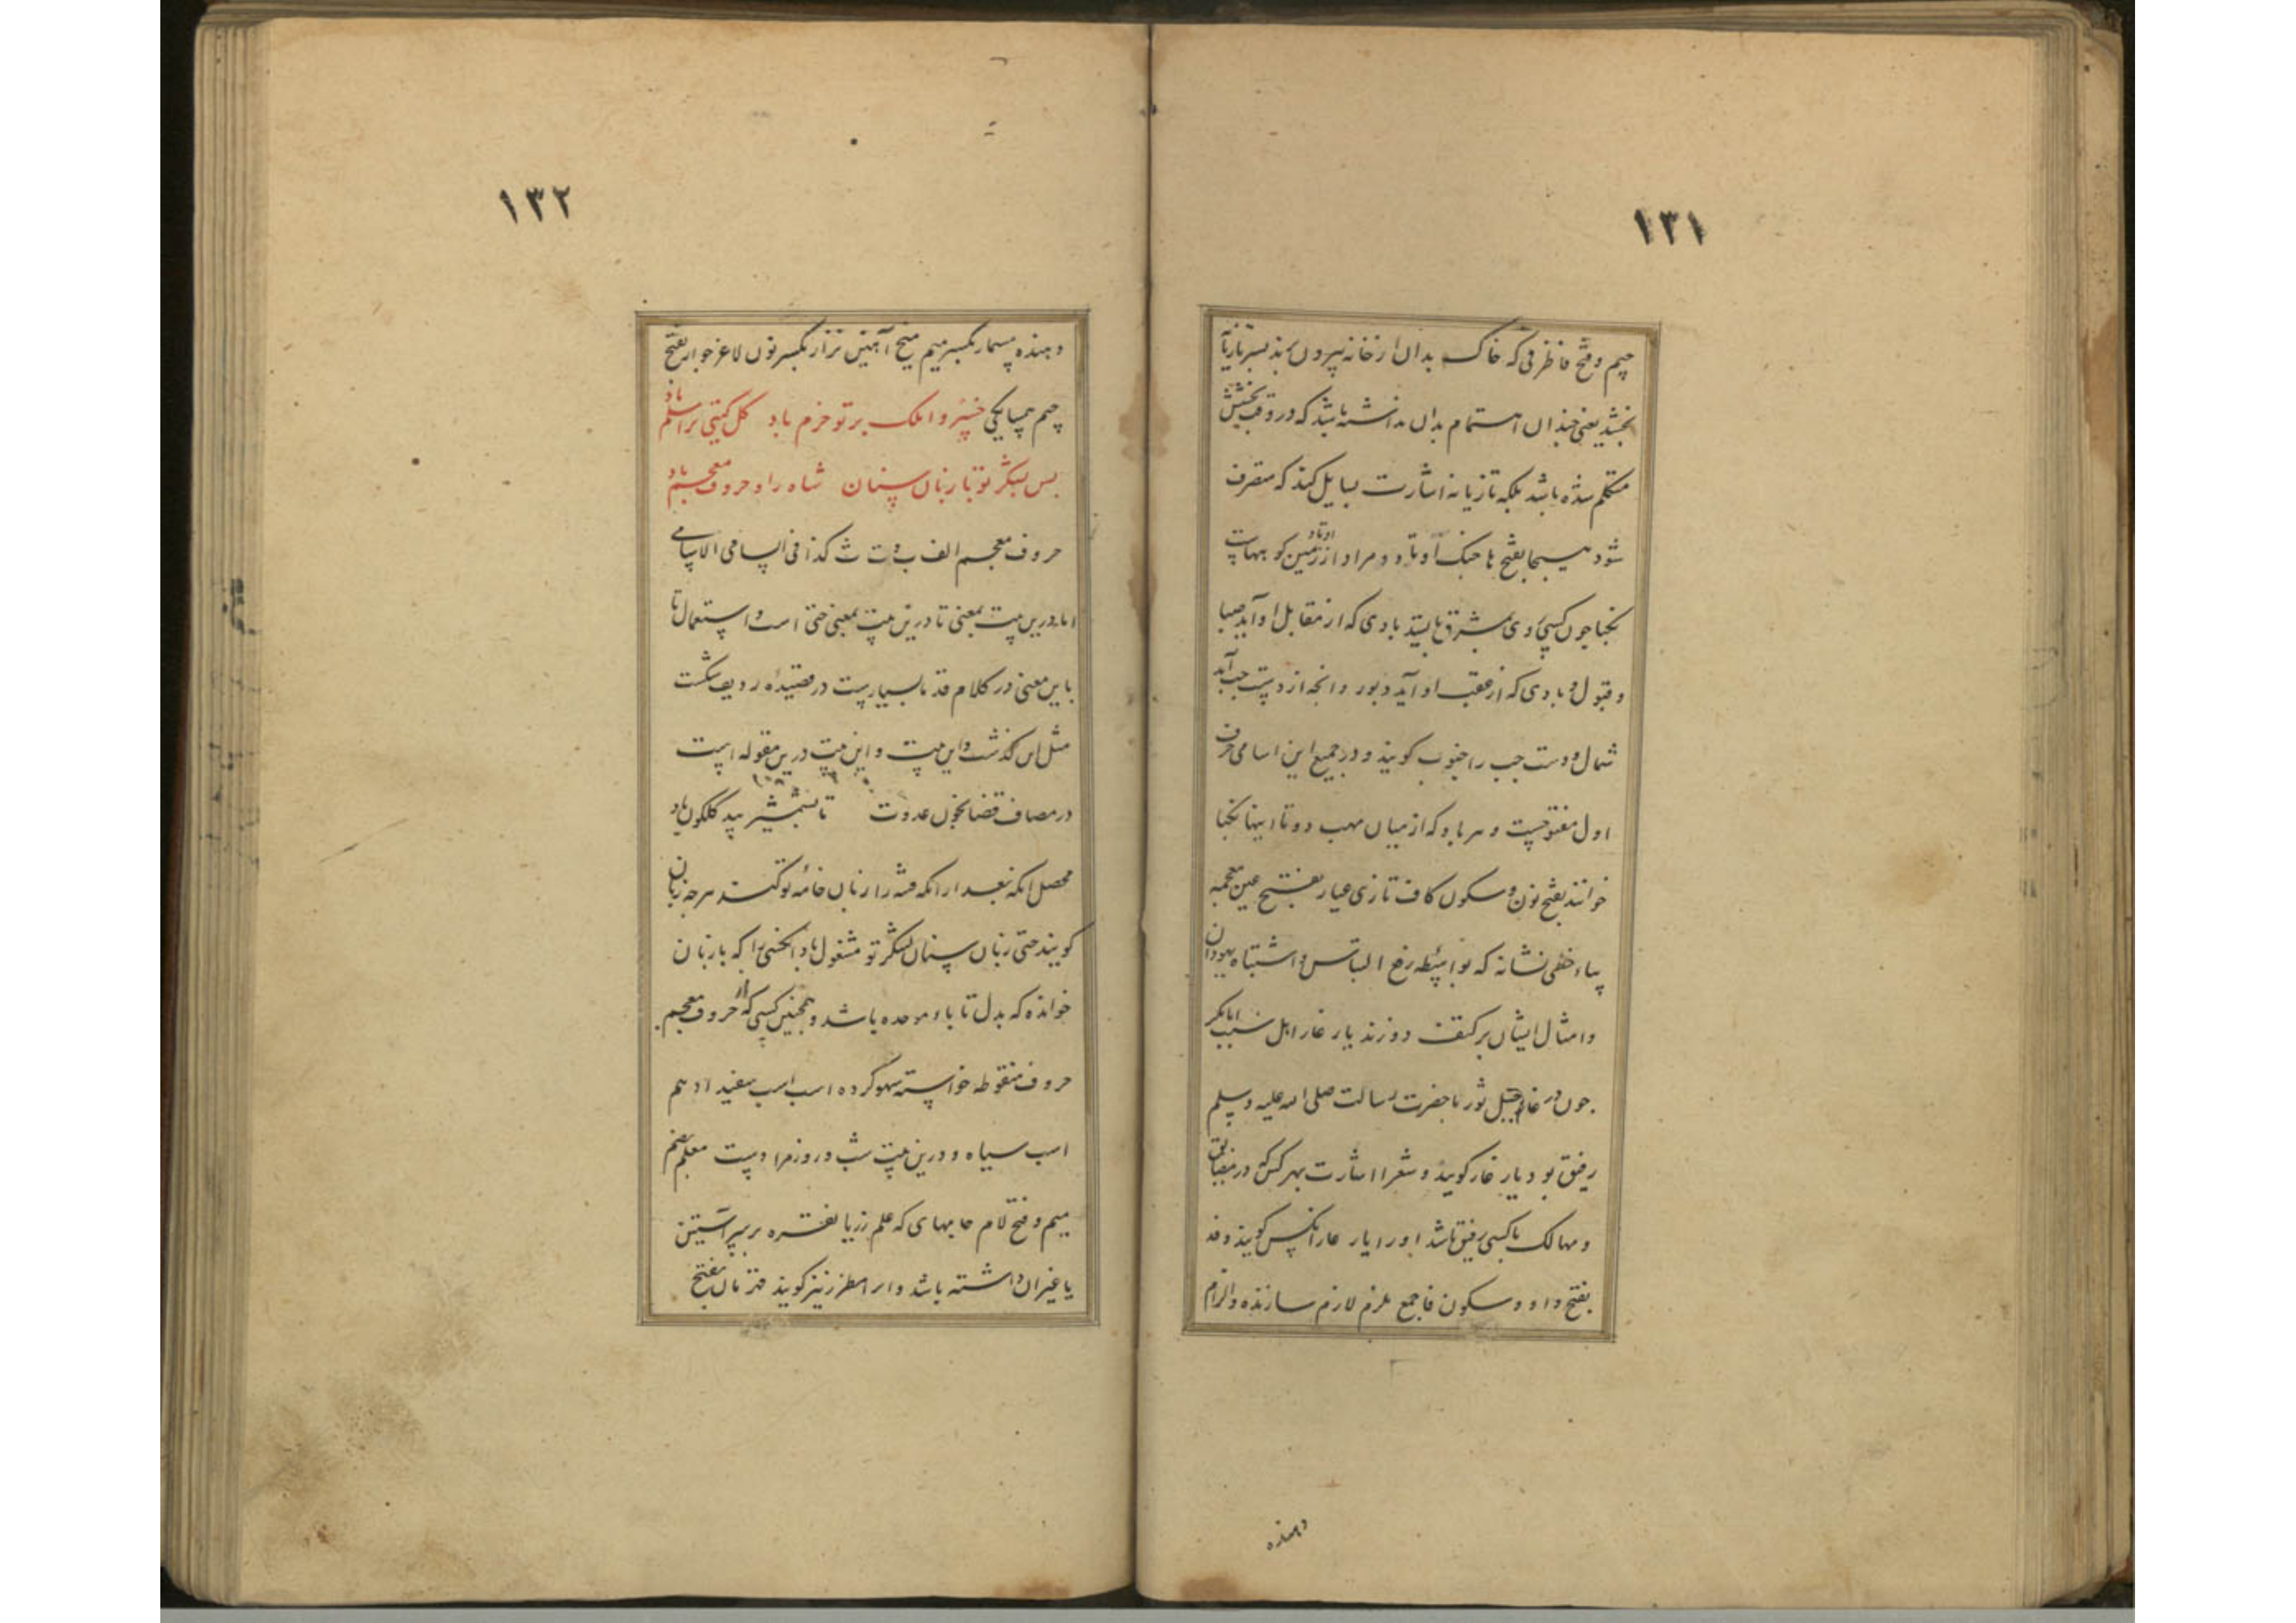 ١٣١
جیم و فتح فا ظرفی که خاک بدان از خانه بیرون
بخشد یعنی چندان اهتمام بدان نداشته باشد که در وقت بخشش
متکلم شده باشد بلکه تازیانه اشارت بسایل کند که متصرف
شود بفتح با جنک اوتاد مراد از زمین کوبهاست
نکبا چون کسی روی بمشرق بایستد بادی که از مقابل او آید صبا
و قبول و بادی که از عقب او آید دبور و انچه از دست چپ آید
شمال و دست چپ را جنوب کویند و در جمیع این اسامی حرف
اول مفتوحست و هر باد که از میان مهب دو تا اینها نکبا
خوانند بفتح نون و سکون کاف تازی غیار بفتح غین معجمه
بیاء خفی نشانه که بواسطه رفع التباس و اشتباه یهودان
و امثال ایشان بر کتف دوزند یار غار
چون در غار جبل ثور با حضرت رسالت صلی الله علیه وسلم
رفیق بود یار غار کویند و شعرا اشارت بهر کس که در
و مهالک با کسی رفیق باشد اورا یار غار انکس کویند وفد
بفتح واو و سکون فا جمع ملزم لازم سازنده والزام
دهنده
١٣٢
دهنده مسمار بکسر میم میخ آهنین نزار بکسر نون لاغر جوار بفتح
جیم همسایکی خسروا ملک بر تو خرم باد کل کیتی ترا مسلم باد
بس لشکر تو با زبان سنان شاه راو حروف معجم باد
حروف معجم الف ب ت ث کذا فی السامی الاسامی
اما درین بیت بمعنی تا درین بیت بمعنی حتی است و استعمال تا
باین معنی در کلام قدما بسیارست در قصیده ردیف شکست
مثل این کذشت و این بیت و این بیت درین مقوله است
در مصاف قضا بخون عدوت تا بشمشیر بید کلکون باد
محصل انکه بعد از انکه فتنه را زبان خامه تو کنند هر چه زبان
کویند حتی زبان سنان لشکر تو مشغول باد انکسی را که با زبان
خوانده که بدل تا باء موحده باشد و همچنین کسی که از حروف معجم
حروف منقوطه خواسته سهو کرده اسب اسب سفید ادهم
اسب سیاه و درین بیت شب و روز مرادست معلم بضم
میم و فتح لام جامهای که علم زر یا نقره بر سر آستین
یا غیر ان داشته باشد و انرا مطرز نیز کویند بفتح